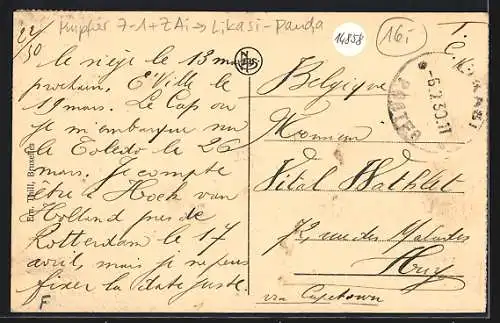 22/50
7-1+ZAi → Likasi-Panda
14858
16i
le 13
prochain, E'Ville le
19 mars. Le Cap où
je m'embarque sur
le Toledo le 26
mars. Je compte
être à Hoek van
Holland près de
Rotterdam le 17
avril, mais je ne peux
fixer la date juste.
F
Ern. Thill, Bruxelles
NELS
Belgique
Monsieur
Vital Wathlet
72, rue des Malades
Huy
via Capetown
POSTES
-6.2.30.11